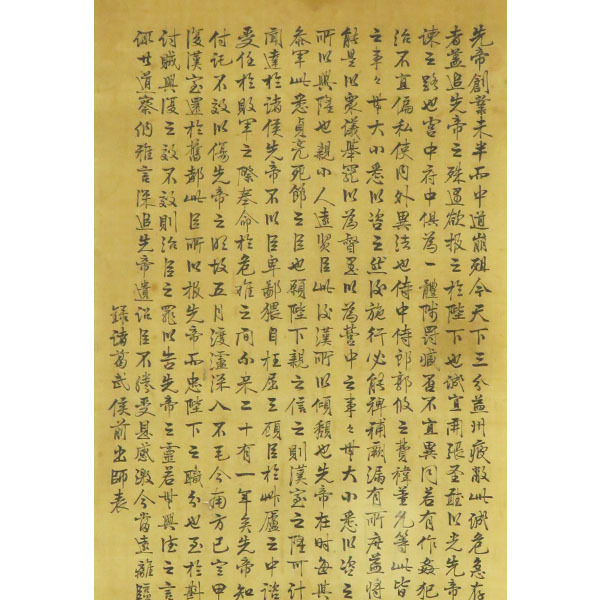 先帝創業未半而中道崩殂今天下三分益州疲敝此誠危急存
者蓋追先帝之殊遇欲報之於陛下也誠宜開張聖聽以光先帝
諫之路也宮中府中俱為一體陟罰臧否不宜異同若有作姦犯
治不宜偏私使內外異法也侍中侍郎郭攸之費禕董允等此皆
之事々無大小悉以咨之然後施行必能裨補闕漏有所廣益將
能是以衆議舉寵以為督愚以為營中之事々無大小悉以咨之
所以興隆也親小人遠賢臣此後漢所以傾頹也先帝在時每與
參軍此悉貞亮死節之臣也願陛下親之信之則漢室之隆可計
聞達於諸侯先帝不以臣卑鄙猥自枉屈三顧臣於草廬之中諮
受任於敗軍之際奉命於危難之間爾來二十有一年矣先帝知
付託不效以傷先帝之明故五月渡瀘深入不毛今南方已定甲
復漢室還於舊都此臣所以報先帝而忠陛下之職分也至於斟
討賊興復之效不效則治臣之罪以告先帝之靈若無興德之言
諏善道察納雅言深追先帝遺詔臣不勝受恩感激今當遠離臨
錄諸葛武侯前出師表